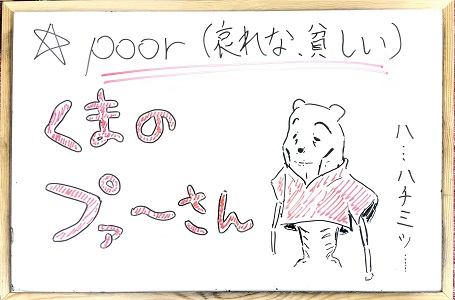 ☆ poor (哀れな、貧しい)
くまの
プァーさん
ハ…ハチミツ……